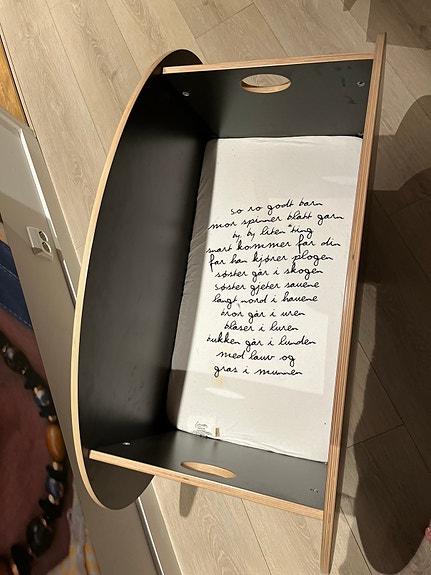 so ro godt barn
mor spinner blått garn
by, by liten ting
snart kommer far din
far han kjører plogen
søster går i skogen
søster gjeter sauene
langt nord i hauene
bror går i uren
blåser i luren
bukken går i lunden
med lauv og
gras i munnen